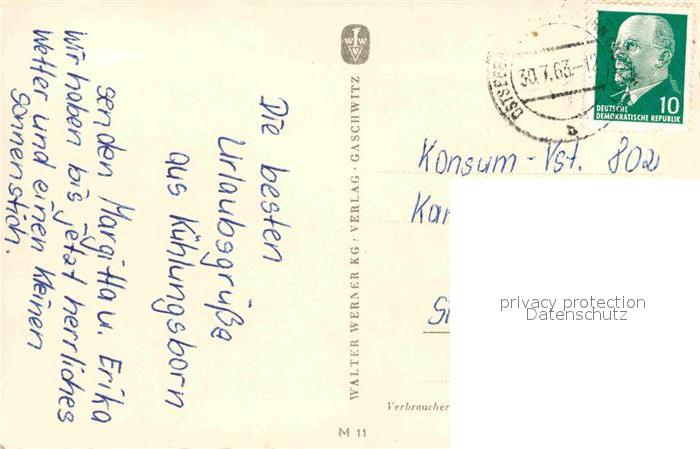 Die besten
Urlaubsgrüße
aus Kühlungsborn
senden Margitta u. Erika
Wir haben bis jetzt herrliches
Wetter und einen kleinen
Sonnenstich.
WALTER WERNER KG: VERLAG · GASCHWITZ
WVW
M 11
30.7.63.-12
10
DEUTSCHE
DEMOKRATISCHE REPUBLIK
Konsum-Vst. 802
Verbraucher
privacy protection
Datenschutz